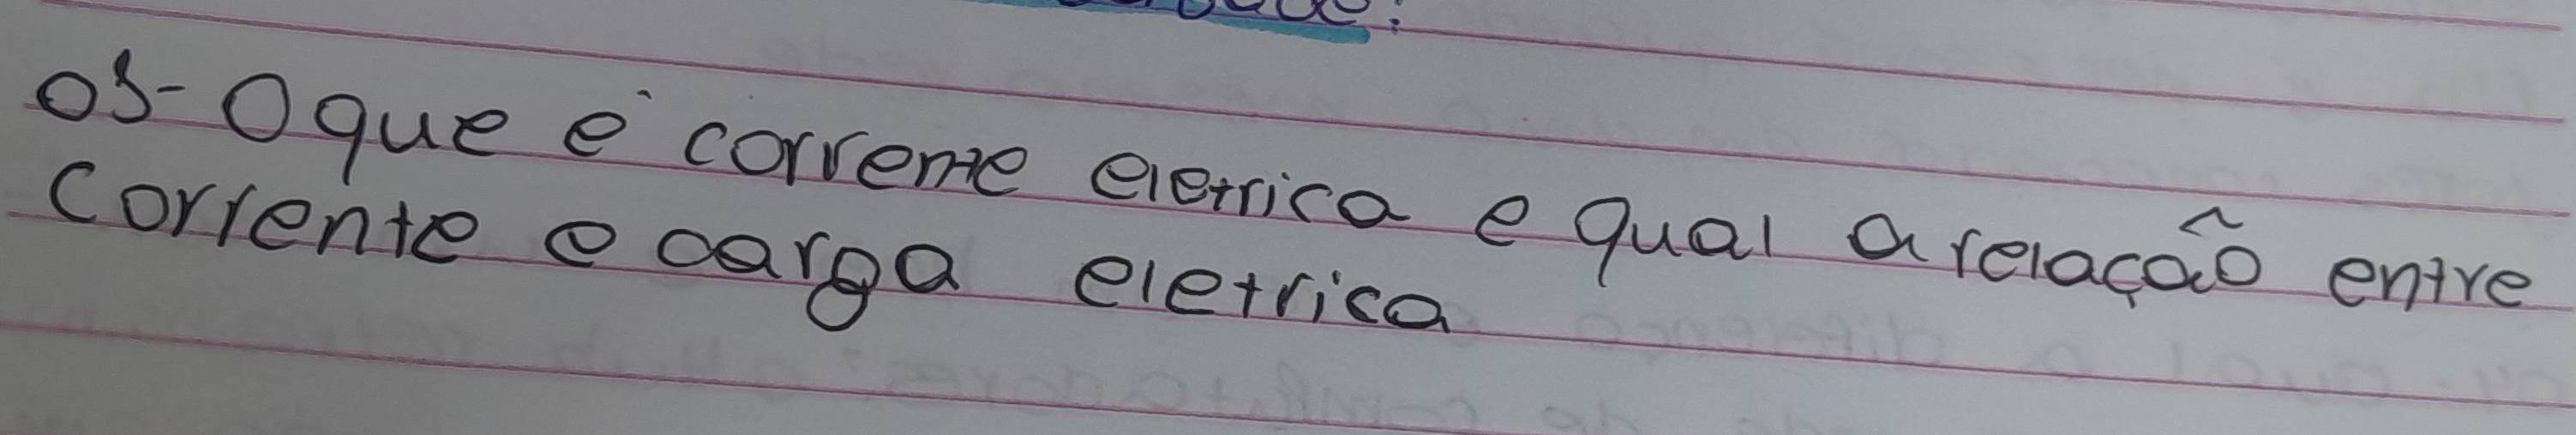 01- O que é corrente eletrica e qual a relação entre
corrente e carga eletrica